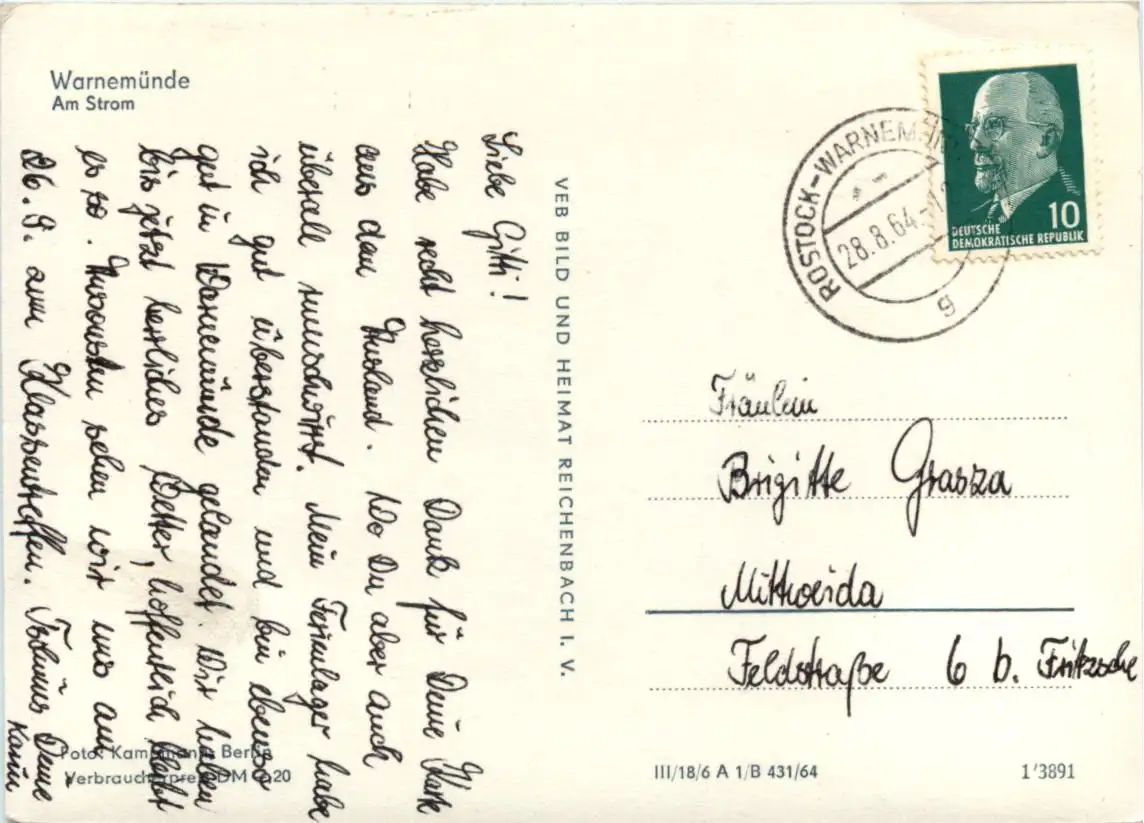 Warnemünde
Am Strom
Liebe Gitti!
Habe recht herzlichen Dank für Deine Karte
aus dem Ausland. Wo Du aber auch
überall rumschwirrst. Mein Ferienlager habe
ich gut überstanden und bin ebenso
gut in Warnemünde gelandet. Wir haben
bis jetzt herrliches Wetter, hoffentlich bleibt
es so. Ansonsten sehen wir uns am
26. 9. zum Klassentreffen. Tschüss Deine
Karin
Foto: Berlin
Verbraucherpreis DM 0,20
VEB BILD UND HEIMAT REICHENBACH I. V.
ROSTOCK-WARNEMÜNDE
28.8.64
g
10
DEUTSCHE
DEMOKRATISCHE REPUBLIK
Fräulein
Brigitte Grasza
Mittweida
Feldstraße 6 b. Fritzsche
III/18/6 A 1/B 431/64
1'3891